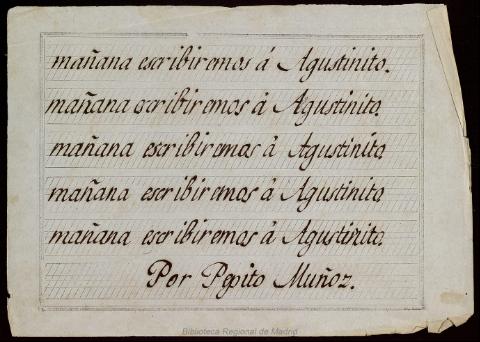 mañana escribiremos á Agustinito.
mañana escribiremos á Agustinito.
mañana escribiremos á Agustinito
mañana escribiremos á Agustinito
mañana escribiremos á Agustinito.
Por Pepito Muñoz.
Biblioteca Regional de Madrid